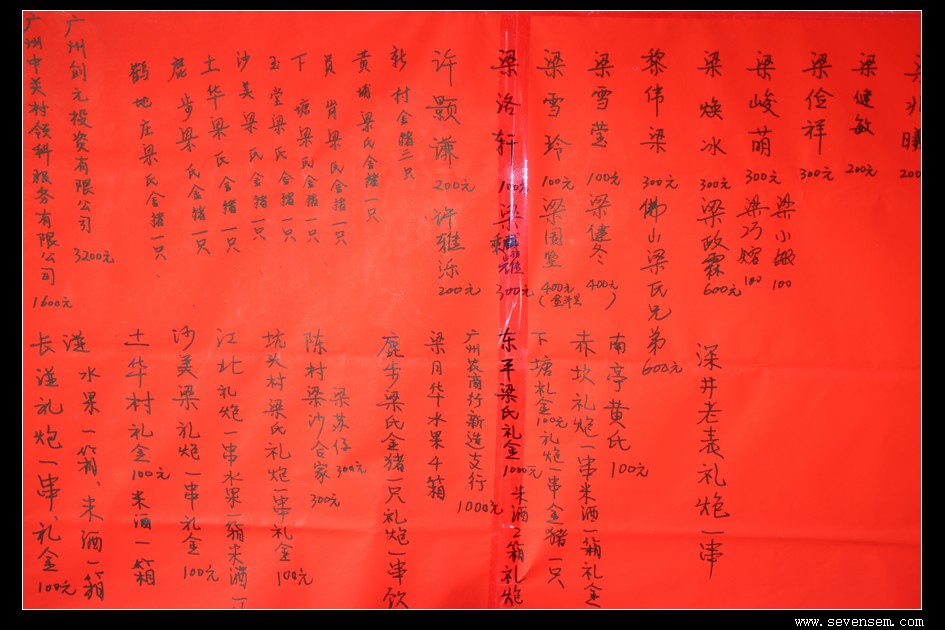 梁健敏 200元
梁俭祥 300元
梁峻萌 300元
梁小銀 100
梁巧嫆 100
梁焕冰 300元
梁政霖 600元
黎伟梁 300元
佛山梁氏兄弟 600元
梁雪莹 100元
梁健冬 400元
梁雪玲 100元
梁国坚 400元
(金斗里)
梁洛轩 100元
300元
许颢谦 200元
许雅泺 200元
新村金猪二只
黄埔梁氏金猪一只
肖梁氏金猪一只
下塘梁氏金猪一只
玉堂梁氏金猪一只
沙美梁氏金猪一只
土华梁氏金猪一只
鹿步梁氏金猪一只
鹤地庄梁氏金猪一只
广州创元投资有限公司 3200元
广州中关村领科服务有限公司 1600元
深井老表礼炮一串
南亭黄氏 100元
赤坎礼炮一串米酒一箱礼金
下塘礼金100元礼炮一串金猪一只
东平梁氏礼金1000元米酒2箱礼炮
广州农商行新造支行 1000元
梁月华水果4箱
鹿步梁氏金猪一只礼炮一串饮
梁苏仔 300元
陈村梁沙合家 300元
坑头村梁氏礼炮一串礼金100元
江北礼炮一串水果一箱米酒一
沙美梁礼炮一串礼金100元
土华村礼金100元米酒一箱
涟水果一箱、米酒一箱
长湴礼炮一串、礼金100元
www.sevensem.com